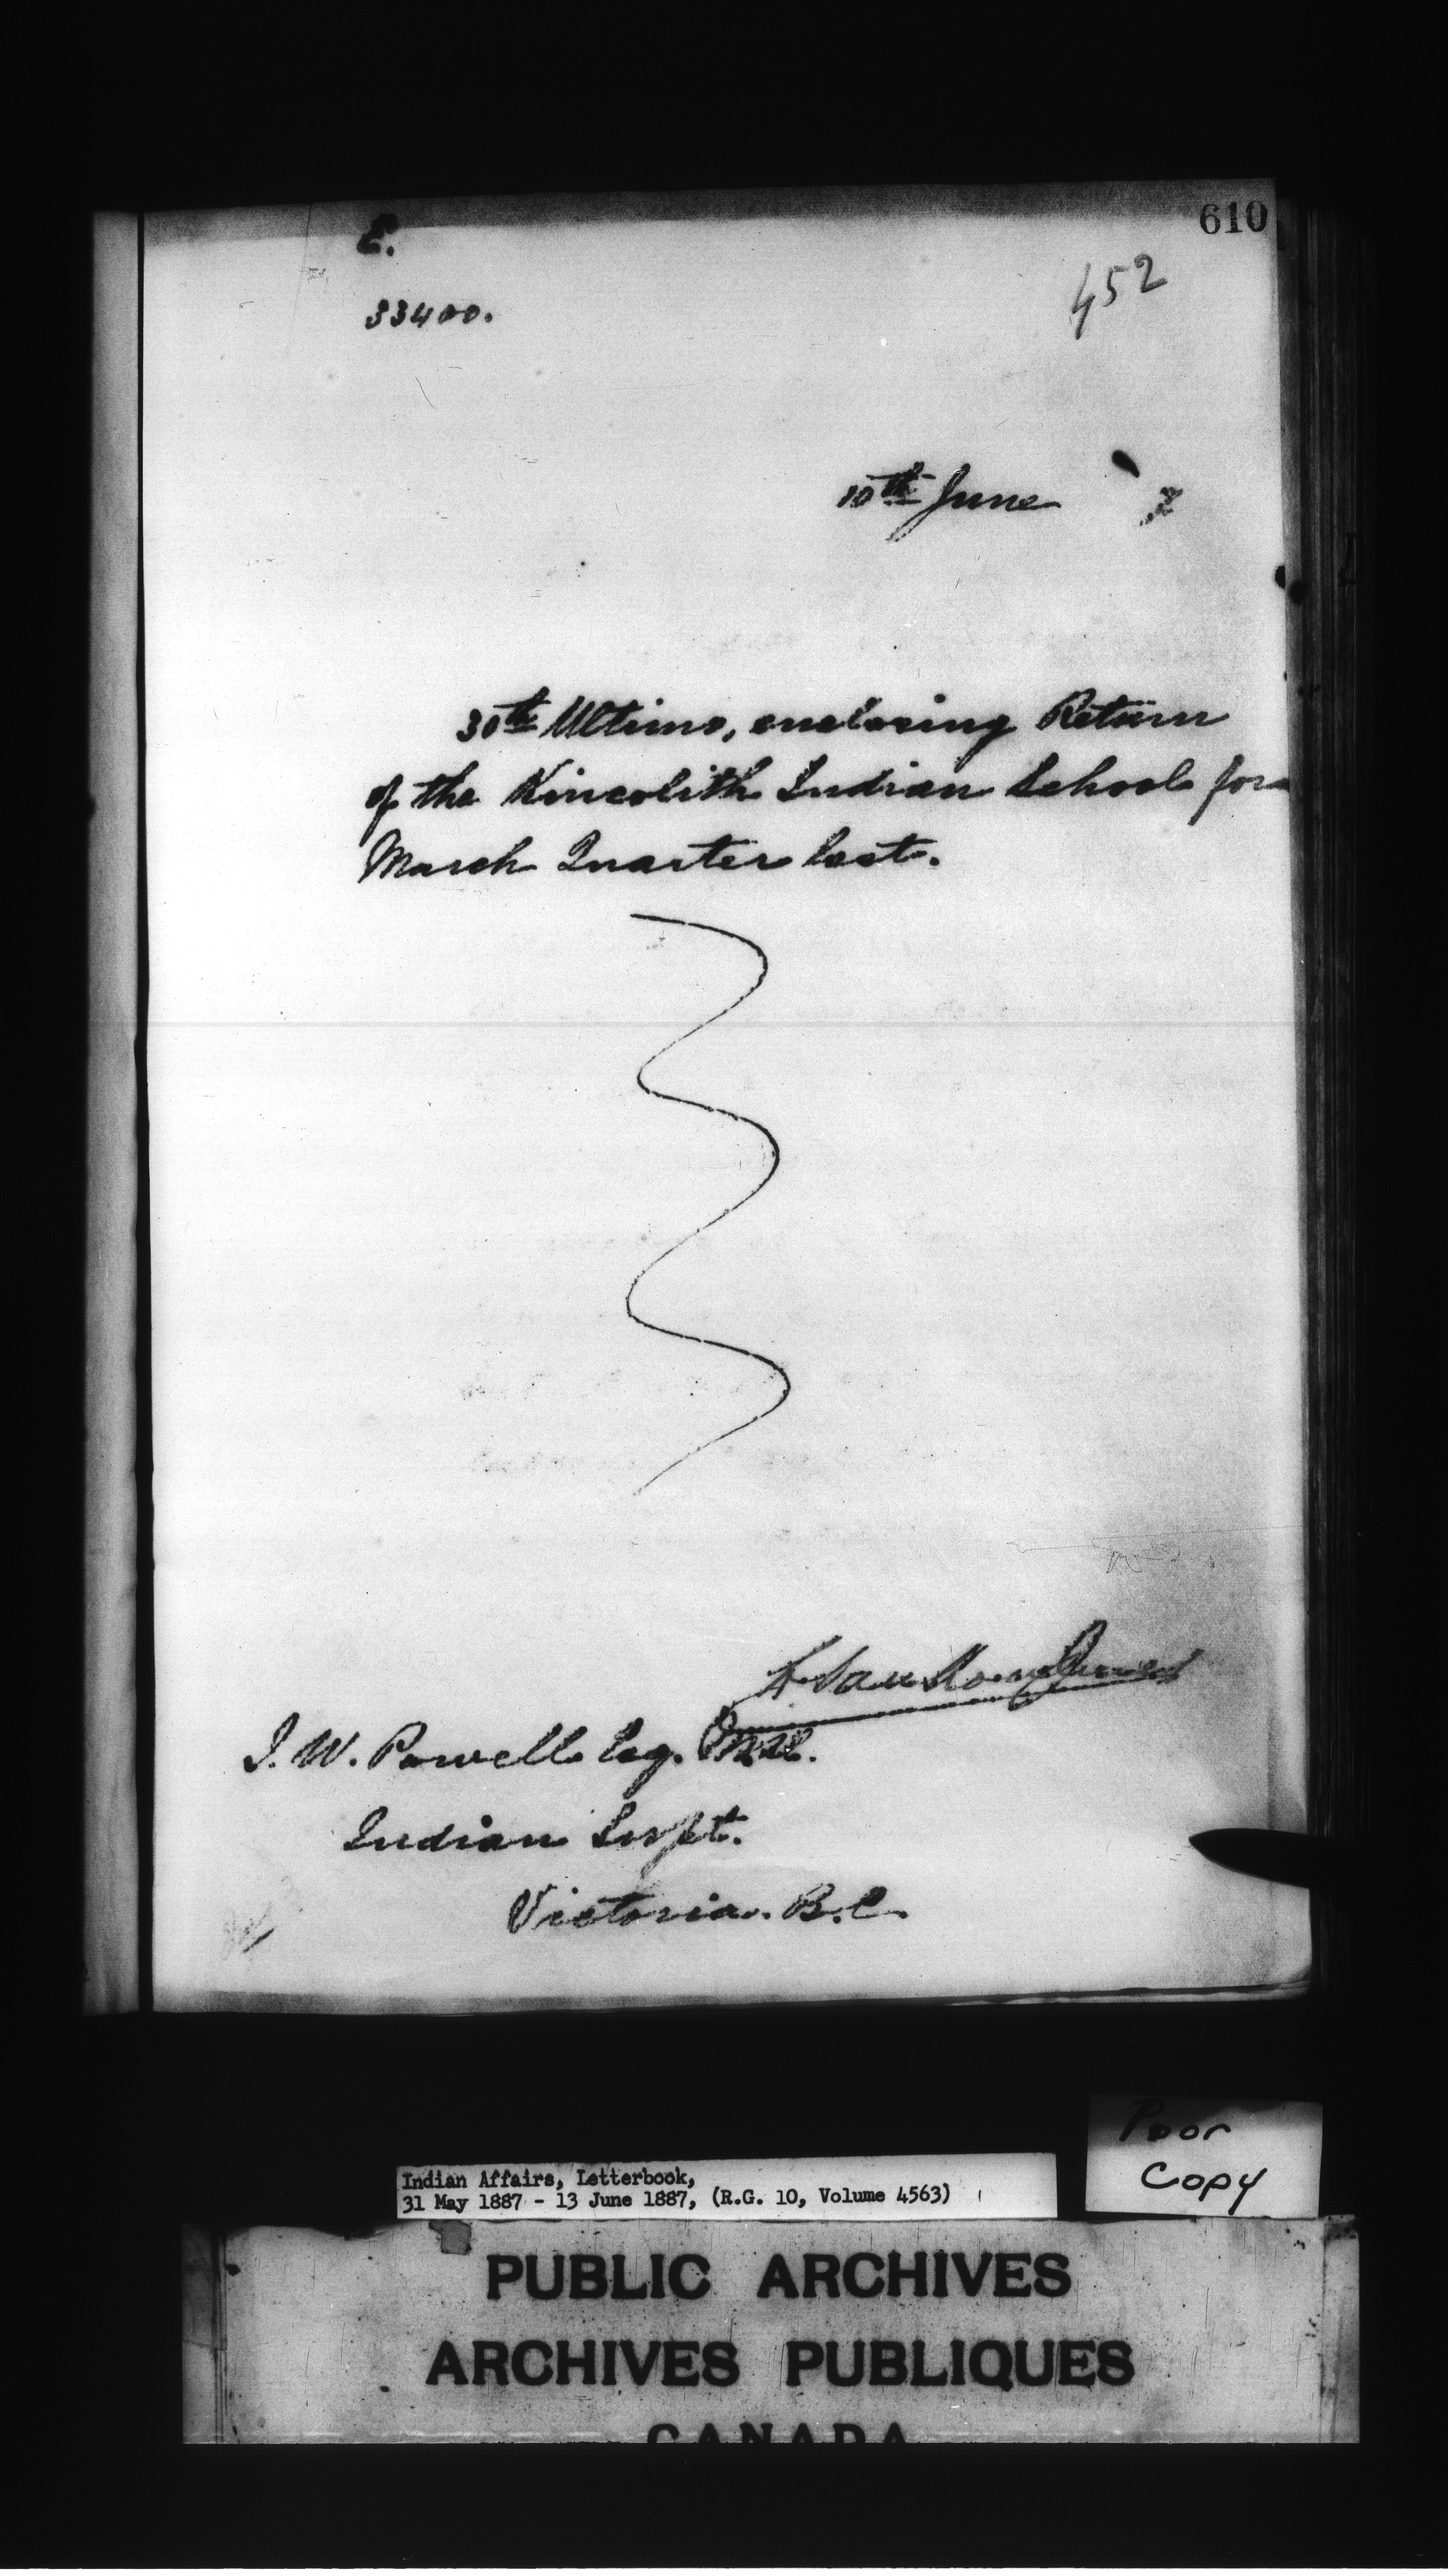 610
E.
452
33400.
10th June 7
30th Ultimo, enclosing Return
of the Kincolith Indian School for
March Quarter last.
I. W. Powell Esq. M.D.
Indian Supt.
Victoria. B.C.
Poor
Copy
Indian Affairs, Letterbook,
31 May 1887 - 13 June 1887, (R.G. 10, Volume 4563)
PUBLIC ARCHIVES
ARCHIVES PUBLIQUES
CANADA